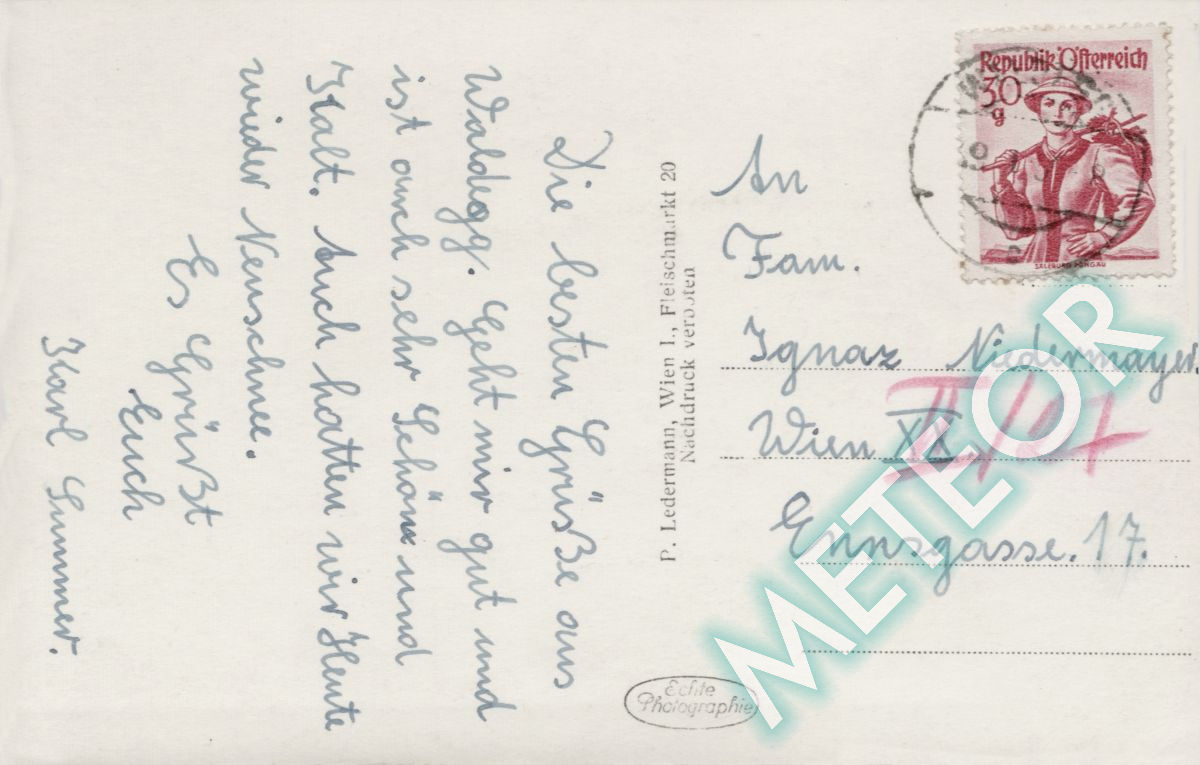 Die besten Grüße aus
Waldegg. Geht mir gut und
ist auch sehr Schön und
Kalt. Auch hatten wir Heute
wieder Neuschnee.
Es Grüßt
Euch
Karl Summer.
P. Ledermann, Wien I., Fleischmarkt 20
Nachdruck verboten
Echte
Photographie
Republik Österreich
30
g
SALZBURG PONGAU
An
Fam.
Ignaz Niedermayer
Wien
II/27
Ennsgasse. 17.
METEOR